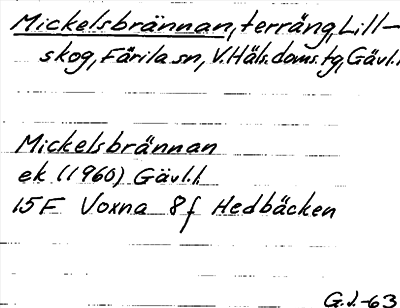 Mickelsbrännan, terräng, Lill-
skog, Färila sn, V. Häls. doms. tg, Gävl. l
Mickelsbrännan
ek (1960) Gävl. l.
15F Voxna 8f Hedbäcken
G.J.-63